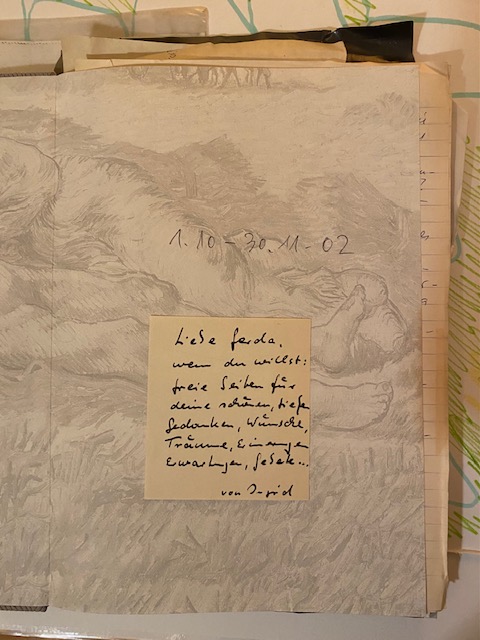 1.10 - 30.11.02
Liebe Gerda,
wenn du willst:
freie Seiten für
deine schönen, tiefen
Gedanken, Wünsche,
Träume, Erinnerungen
Erwartungen, Gebete...
von Ingrid